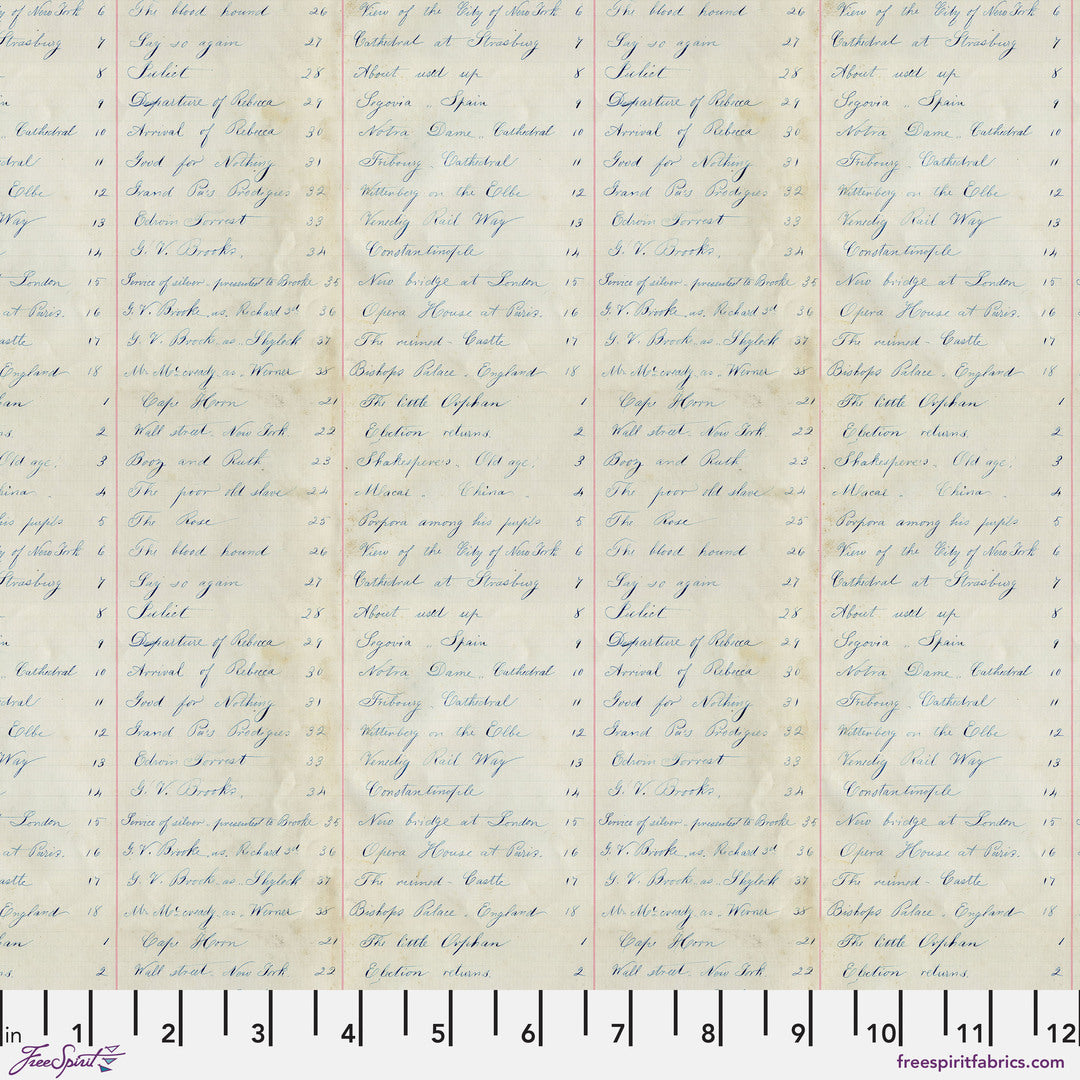 y of New York 6 The blood hound 26 View of the City of New York 6 The blood hound 26 View of the City of New York 6
Strasburg 7 Say so again 27 Cathedral at Strasburg 7 Say so again 27 Cathedral at Strasburg 7
8 Juliet 28 About used up 8 Juliet 28 About used up 8
n 9 Departure of Rebecca 29 Segovia .. Spain 9 Departure of Rebecca 29 Segovia .. Spain 9
.. Cathedral 10 Arrival of Rebecca 30 Notra Dame .. Cathedral 10 Arrival of Rebecca 30 Notra Dame .. Cathedral 10
dral 11 Good for Nothing 31 Fribourg . Cathedral 11 Good for Nothing 31 Fribourg . Cathedral 11
Elbe 12 Grand Pa's Prodigies 32 Wittenberg on the Elbe 12 Grand Pa's Prodigies 32 Wittenberg on the Elbe 12
Way 13 Edwin Forrest 33 Venedig Rail Way 13 Edwin Forrest 33 Venedig Rail Way 13
14 G. V. Brooke, 34 Constantinople 14 G. V. Brooke, 34 Constantinople 14
t London 15 Service of silver - presented to Brooke 35 New bridge at London 15 Service of silver - presented to Brooke 35 New bridge at London 15
at Paris. 16 G. V. Brooke as. Richard 3d 36 Opera House at Paris. 16 G. V. Brooke as. Richard 3d 36 Opera House at Paris. 16
astle 17 G. V. Brook as. Shylock 37 The ruined - Castle 17 G. V. Brook as. Shylock 37 The ruined - Castle 17
England 18 Mr. McCready as. Werner 38 Bishops Palace . England 18 Mr. McCready as. Werner 38 Bishops Palace . England 18
han 1 Cape Horn 21 The little Orphan 1 Cape Horn 21 The little Orphan 1
ns. 2 Wall street. New York. 22 Election returns. 2 Wall street. New York. 22 Election returns. 2
Old age. 3 Booz and Ruth 23 Shakespere's . Old age. 3 Booz and Ruth 23 Shakespere's . Old age. 3
hina . 4 The poor old slave 24 Macai . China . 4 The poor old slave 24 Macai . China . 4
his pupils 5 The Rose 25 Porpora among his pupils 5 The Rose 25 Porpora among his pupils 5
y of New York 6 The blood hound 26 View of the City of New York 6 The blood hound 26 View of the City of New York 6
Strasburg 7 Say so again 27 Cathedral at Strasburg 7 Say so again 27 Cathedral at Strasburg 7
8 Juliet 28 About used up 8 Juliet 28 About used up 8
n 9 Departure of Rebecca 29 Segovia .. Spain 9 Departure of Rebecca 29 Segovia .. Spain 9
.. Cathedral 10 Arrival of Rebecca 30 Notra Dame .. Cathedral 10 Arrival of Rebecca 30 Notra Dame .. Cathedral 10
dral 11 Good for Nothing 31 Fribourg . Cathedral 11 Good for Nothing 31 Fribourg . Cathedral 11
Elbe 12 Grand Pa's Prodigies 32 Wittenberg on the Elbe 12 Grand Pa's Prodigies 32 Wittenberg on the Elbe 12
Way 13 Edwin Forrest 33 Venedig Rail Way 13 Edwin Forrest 33 Venedig Rail Way 13
14 G. V. Brooke, 34 Constantinople 14 G. V. Brooke, 34 Constantinople 14
t London 15 Service of silver - presented to Brooke 35 New bridge at London 15 Service of silver - presented to Brooke 35 New bridge at London 15
at Paris. 16 G. V. Brooke as. Richard 3d 36 Opera House at Paris. 16 G. V. Brooke as. Richard 3d 36 Opera House at Paris. 16
astle 17 G. V. Brook as. Shylock 37 The ruined - Castle 17 G. V. Brook as. Shylock 37 The ruined - Castle 17
England 18 Mr. McCready as. Werner 38 Bishops Palace . England 18 Mr. McCready as. Werner 38 Bishops Palace . England 18
han 1 Cape Horn 21 The little Orphan 1 Cape Horn 21 The little Orphan 1
ns. 2 Wall street. New York 22 Election returns. 2 Wall street. New York 22 Election returns. 2
in 1 2 3 4 5 6 7 8 9 10 11 12
FreeSpirit
freespiritfabrics.com